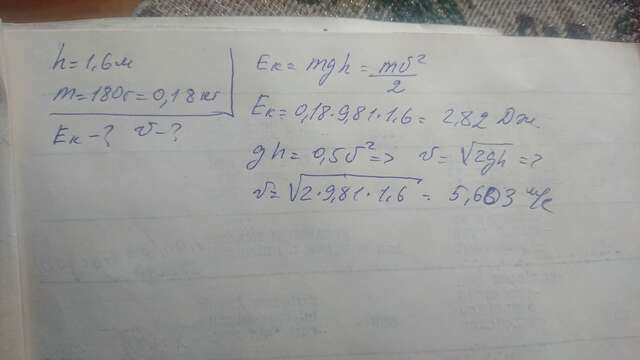 h=1,6м
m=180г=0,18кг
Eк-? v-?
Eк=mgh=mv²/2
Eк=0,18·9,81·1,6=2,82 Дж
gh=0,5v²=> v=√2gh=>
v=√2·9,81·1,6=5,603 м/с